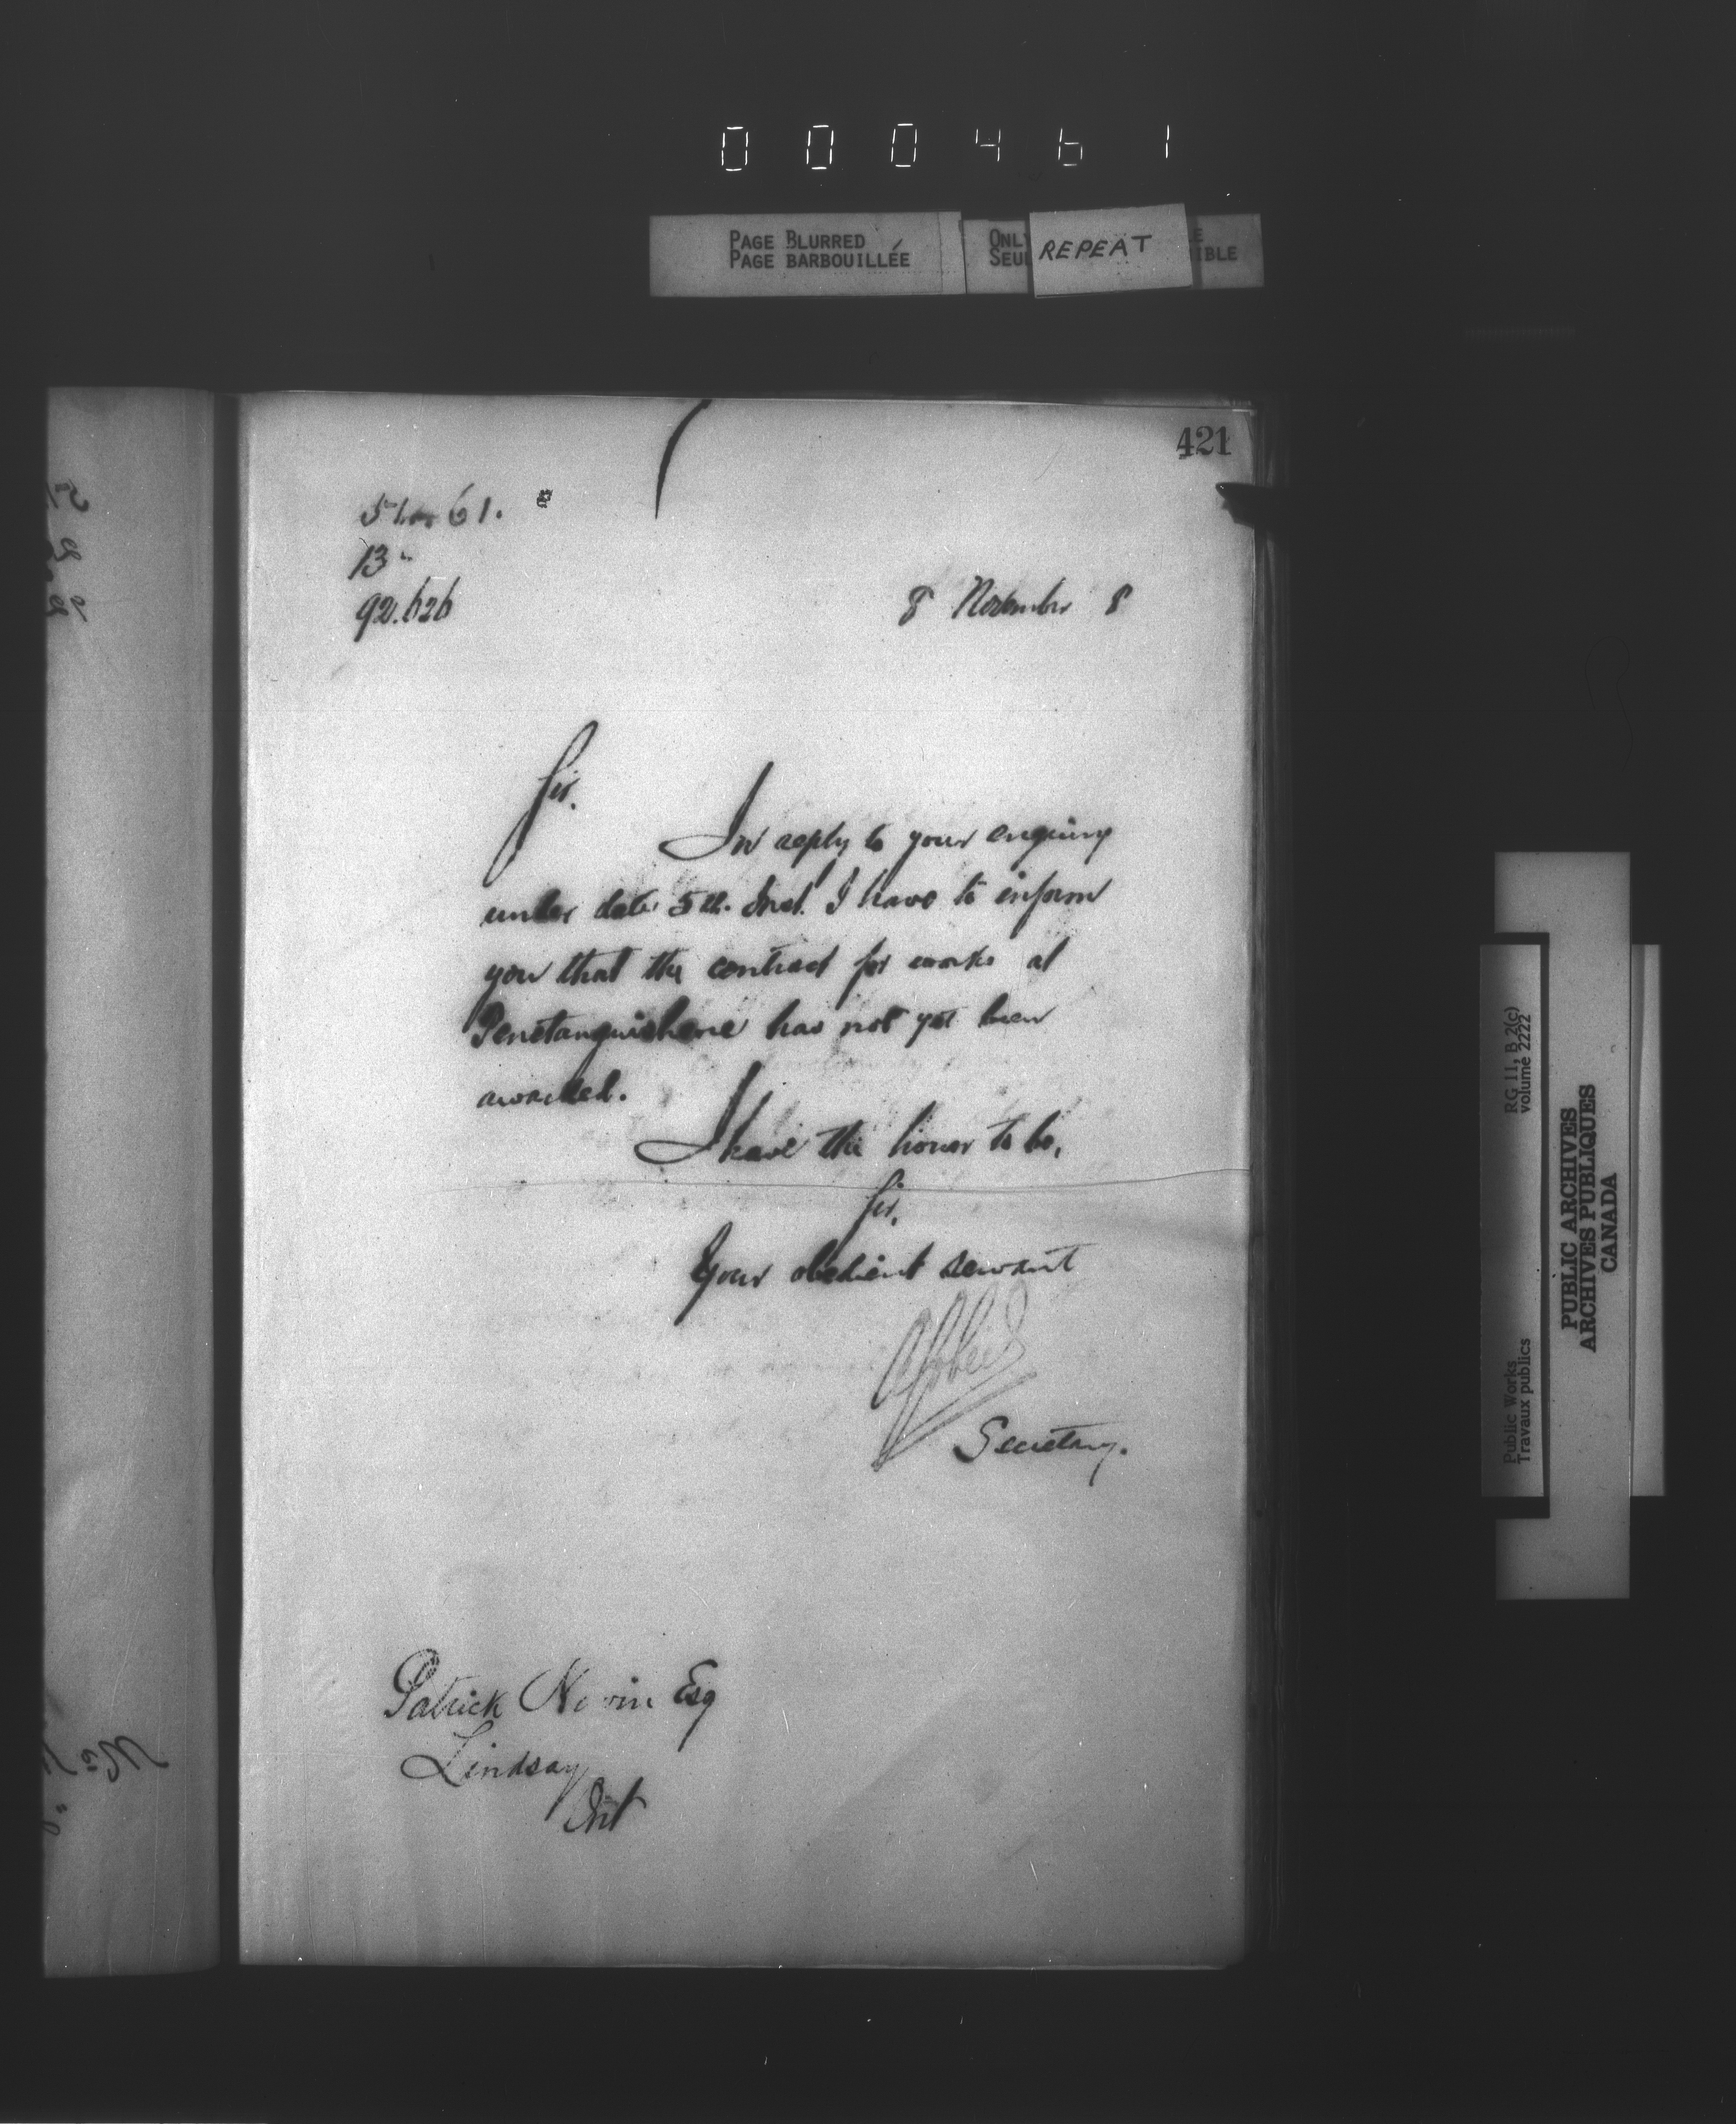 000461
PAGE BLURRED
PAGE BARBOUILLÉE
ONLY
SEUL
REPEAT
IBLE
421
61.
13
92.626
8 November 8
Sir.
In reply to your enquiry
under date 5th. Inst. I have to inform
you that the contract for works at
Penetanguishene has not yet been
awarded.
I have the honor to be,
Sir,
Your obedient servant
Secretary.
Patrick Esq
Lindsay
Ont
Public Works
Travaux publics
RG 11, B 2(c)
volume 2222
PUBLIC ARCHIVES
ARCHIVES PUBLIQUES
CANADA